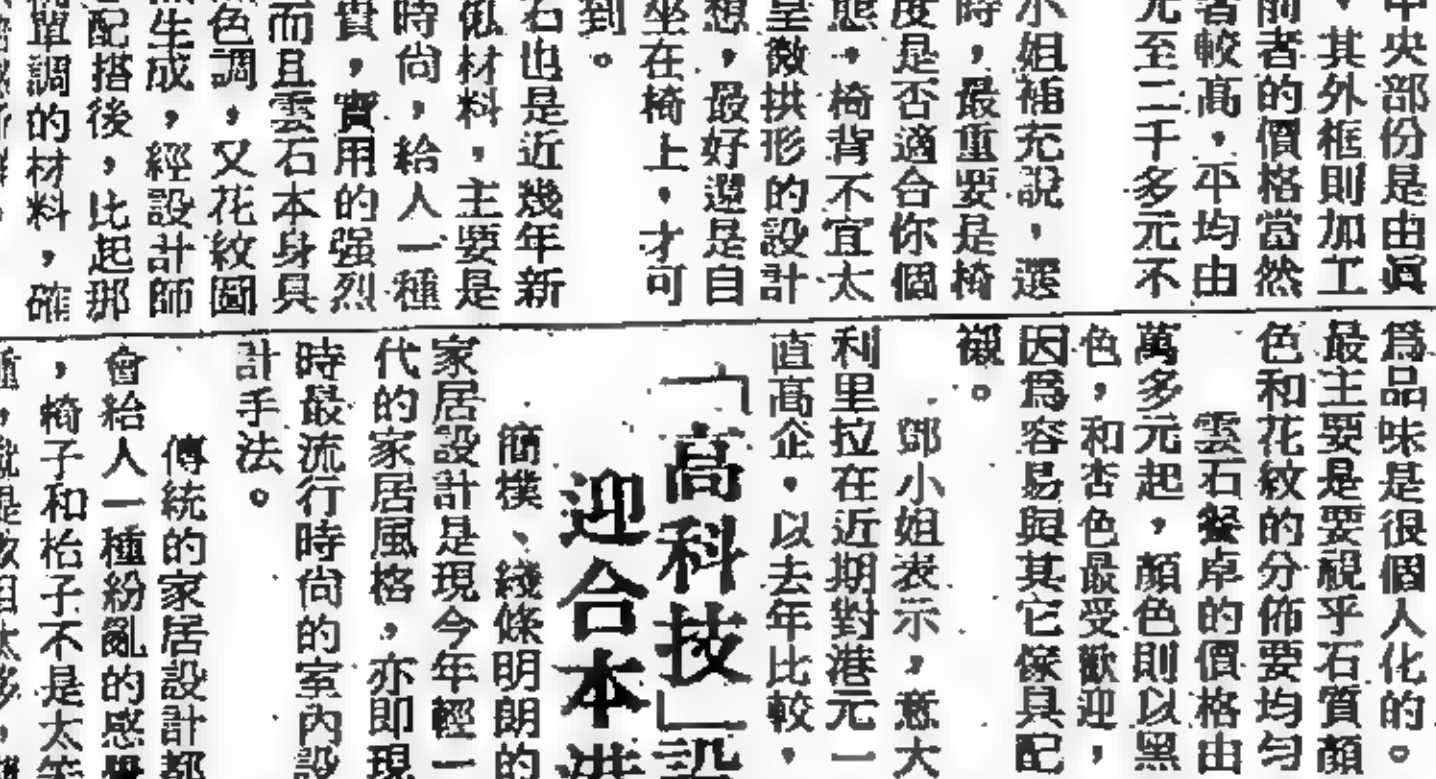 中央部份是由眞
，其外框則加工
前者的價格當然
者較高，平均由
元至二千多元不
小姐補充說，選
時，最重要是椅
度是否適合你個
態，椅背不宜太
呈微拱形的設計
想，最好還是自
坐在椅上，才可
到。
石也是近幾年新
俬材料，主要是
時尚，給人一種
貴，實用的强烈
而且雲石本身具
色調，又花紋圖
生成，經設計師
配搭後，比起那
單調的材料，確
爲品味是很個人化的。
最主要是要視乎石質顏
色和花紋的分佈要均勻
雲石餐桌的價格由
萬多元起，顏色則以黑
色，和杏色最受歡迎，
因爲容易與其它傢具配
襯。
鄧小姐表示，意大
利里拉在近期對港元一
直高企，以去年比較，
「高科技」設
迎合本港
簡樸、綫條明朗的
家居設計是現今年輕一
代的家居風格，亦即現
時最流行時尚的室內設
計手法。
傳統的家居設計都
會給人一種紛亂的感覺
，椅子和枱子不是太笨